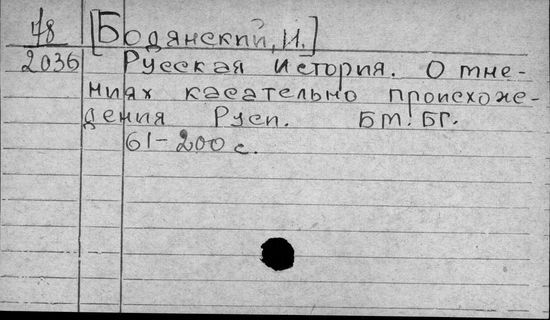 78 [Бодянский, И.]
2036 Русская История. О мне-
ниях касательно происхож-
дения Руси. Б.м. Б.г.
61-200 с.